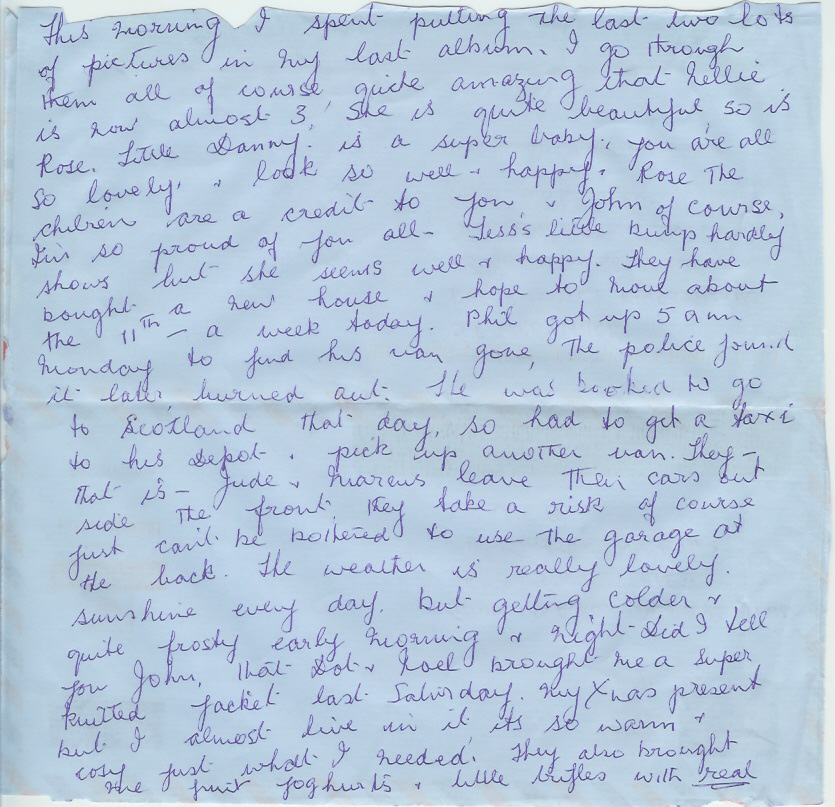 This morning I spent putting the last two lots
of pictures in my last album. I go through
them all of course quite amazing that Nellie
is now almost 3, She is quite beautiful so is
Rose. Little Danny. is a super baby., you are all
so lovely, & look so well & happy. Rose The
children are a credit to you & John of course,
I'm so proud of you all - Tess's little bump hardly
shows but she seems well & happy. They have
bought a new house & hope to move about
the 11th - a week today. Phil got up 5 am
Monday to find his van gone, The police found
it later burned out. He was booked to go
to Scotland that day, so had to get a taxi
to his Depot & pick up another van. They -
that is - Jude & Marcus leave their cars out
side the front, they take a risk of course
just can't be bothered to use the garage at
the back. The weather is really lovely.
sunshine every day, but getting colder &
quite frosty early morning & night. Did I tell
you John, that Dot & Noel brought me a super
knitted jacket last Saturday. My Xmas present
but I almost live in it its so warm &
cosy just what I needed. They also brought
me fruit yoghurts & little trifles with real